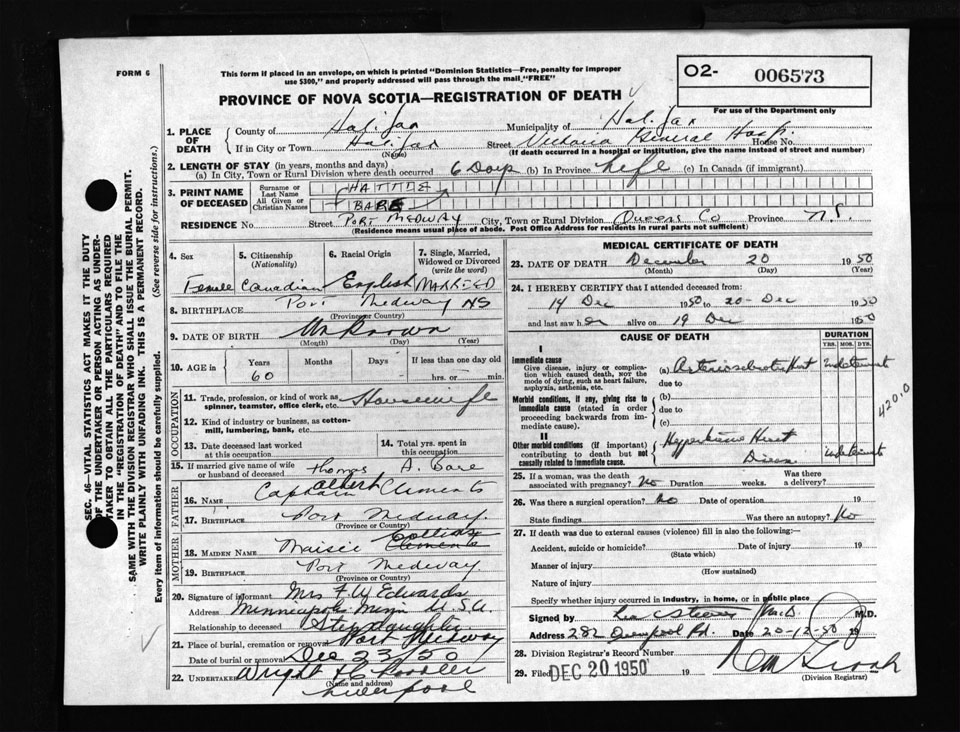 FORM 6
This form if placed in an envelope, on which is printed "Dominion Statistics—Free, penalty for improper
use $300," and properly addressed will pass through the mail "FREE"
O2- 006573
PROVINCE OF NOVA SCOTIA—REGISTRATION OF DEATH
For use of the Department only
1. PLACE OF DEATH
County of Halifax Municipality of Halifax
If in City or Town Halifax Street Victoria General Hosp. House No.
(Name) (If death occurred in a hospital or institution, give the name instead of street and number)
2. LENGTH OF STAY (in years, months and days)
(a) In City, Town or Rural Division where death occurred 6 Days (b) In Province Life (c) In Canada (if immigrant)
3. PRINT NAME OF DECEASED
Surname or Last Name HATTIE
All Given or Christian Names BARE
RESIDENCE No. Street PORT MEDWAY City, Town or Rural Division Queens Co Province N.S.
(Residence means usual place of abode. Post Office Address for residents in rural parts not sufficient)
4. Sex Female
5. Citizenship (Nationality) Canadian
6. Racial Origin English
7. Single, Married, Widowed or Divorced (write the word) MARRIED
8. BIRTHPLACE Port Medway NS
(Province or Country)
9. DATE OF BIRTH Unknown
(Month) (Day) (Year)
10. AGE in Years 60 Months Days - If less than one day old - hrs. or - min.
OCCUPATION
11. Trade, profession, or kind of work as spinner, teamster, office clerk, etc. Housewife
12. Kind of industry or business, as cotton-mill, lumbering, bank, etc.
13. Date deceased last worked at this occupation
14. Total yrs. spent in this occupation
15. If married give name of wife or husband of deceased Thomas A. Bare
FATHER
16. Name Captain Albert Clements
17. BIRTHPLACE Port Medway.
(Province or Country)
MOTHER
18. MAIDEN NAME Maisee Collins Clements
19. BIRTHPLACE Port Medway
(Province or Country)
20. Signature of informant Mrs F W Edwards
Address Minneapolis Minn U.S.A.
Relationship to deceased Step daughter
21. Place of burial, cremation or removal Port Medway
Date of burial or removal Dec 23/50
22. UNDERTAKER Wright
(Name and address)
Liverpool
MEDICAL CERTIFICATE OF DEATH
23. DATE OF DEATH December 20 1950
(Month) (Day) (Year)
24. I HEREBY CERTIFY that I attended deceased from:
14 Dec 1950 to 20-Dec 1950
and last saw her alive on 19 Dec 1950
CAUSE OF DEATH DURATION
YRS. MOS. DYS.
I
Immediate cause
Give disease, injury or complication which caused death, NOT the mode of dying, such as heart failure, asphyxia, asthenia, etc.
(a) Arteriosclerotic Heart indeterminate
due to
Morbid conditions, if any, giving rise to immediate cause (stated in order proceeding backwards from immediate cause).
(b)
due to
(c)
420.0
II
Other morbid conditions (if important) contributing to death but not causally related to immediate cause.
Hypertensive Heart Disease indeterminate
25. If a woman, was the death associated with pregnancy? No Duration weeks. Was there a delivery?
26. Was there a surgical operation? No Date of operation 19
State findings Was there an autopsy? No
27. If death was due to external causes (violence) fill in also the following:
Accident, suicide or homicide? Date of injury 19
(State which)
Manner of injury
(How sustained)
Nature of injury
Specify whether injury occurred in industry, in home, or in public place
Signed by M.D.
Address 282 Date 20-12-50 19
28. Division Registrar's Record Number
29. Filed DEC 20 1950 19
(Division Registrar)
SEC. 46—VITAL STATISTICS ACT MAKES IT THE DUTY
OF THE UNDERTAKER OR PERSON ACTING AS UNDER-
TAKER TO OBTAIN ALL THE PARTICULARS REQUIRED
IN THE "REGISTRATION OF DEATH" AND TO FILE THE
SAME WITH THE DIVISION REGISTRAR WHO SHALL ISSUE THE BURIAL PERMIT.
WRITE PLAINLY WITH UNFADING INK. THIS IS A PERMANENT RECORD.
Every item of information should be carefully supplied. (See reverse side for instructions.)